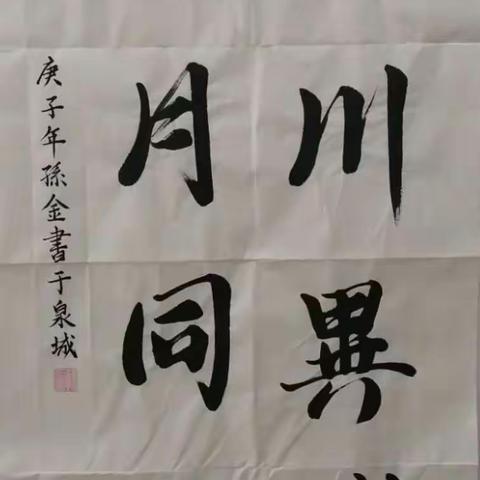 川異
月同
庚子年孫金書于泉城